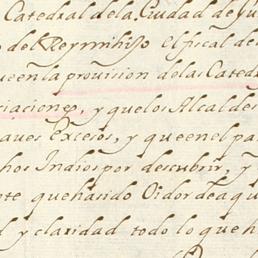 Catedral de la Ciudad de Ju
do del Rey mi hijo el fiscal de
que en la provision de las Cated
ciaciones, y que los Alcaldes
raves Excesos, y que en el pa
hos Indios por descubrir, y
te que ha sido Oidor de aqu
d y claridad todo lo que h